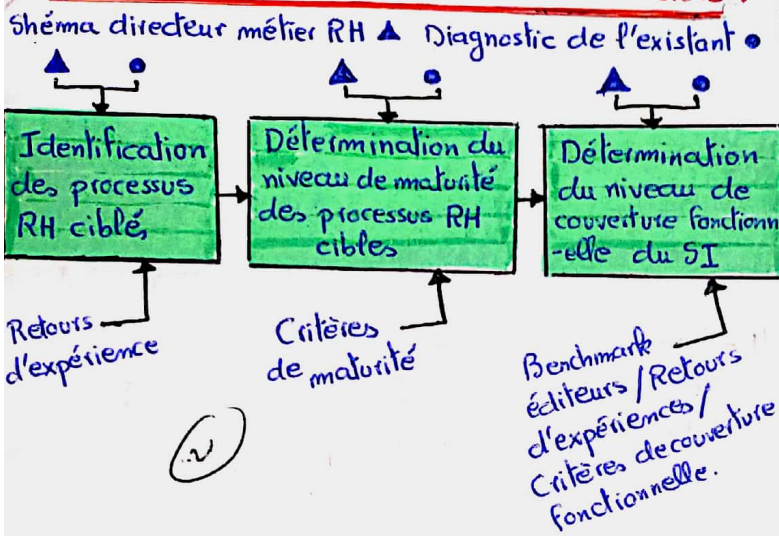 Shéma directeur métier RH ▲ Diagnostic de l'existant ●
Identification
des processus
RH ciblés
Détermination du
niveau de maturité
des processus RH
cibles
Détermination
du niveau de
couverture fonctionn
-elle du SI
Retours
d'expérience
Critères
de maturité
Benchmark
éditeurs / Retours
d'expériences /
Critères de couverture
fonctionnelle.